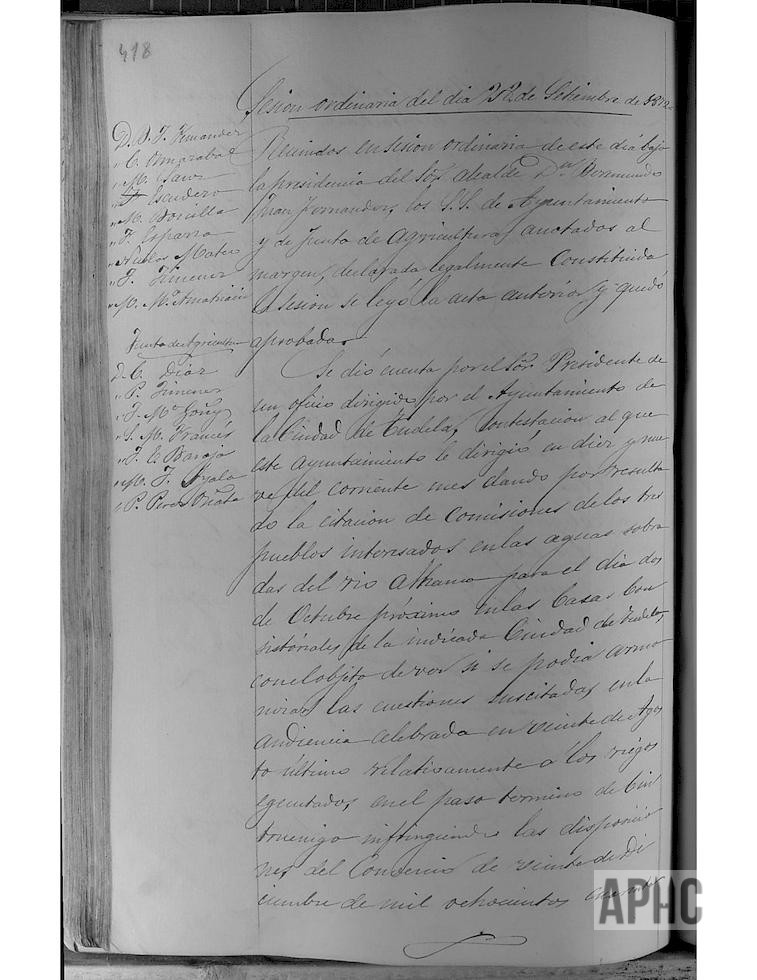 418
Sesion ordinaria del dia 22 de Setiembre de 1872
D. B. F. Fernandez
" C. Omarabal
" M. Sanz
" F Escudero
" M. Bonilla
" F. Esparza
" Nicolas Mateo
" F. Jimenez
" M. Mª Amatriain
Junta de Agricultura
D. C. Diaz
" P. Jimenez
" F. Mª
" S. M. Francés
" F. C. Barojo
" M. F. Ayala
" P. Perez Oñate
Reunidos en sesion ordinaria de este dia bajo
la presidencia del Sor. Alcalde Dn. Bermundo
Fran Fernandez, los S.S. de Ayuntamiento
y de Junta de Agricultura anotados al
margen, declarada legalmente Constituida
la sesion se leyó la acta anterior y quedó
aprobada.
Se dió cuenta por el Sor. Presidente de
un oficio dirigido por el Ayuntamiento de
la Ciudad de Tudela, Contestacion al que
este ayuntamiento le dirigió en diez y nue
ve del corriente mes dando por resulta
do la citacion de Comisiones de los tres
pueblos interesados en las aguas sobra
das del rio Alhama para el dia dos
de Octubre próximo en las Casas Con
sistoriales de la indicada Ciudad de Tudela,
con el objeto de ver si se podia armo
nizar las cuestiones suscitadas en la
audiencia celebrada en veinte de Agos
to último relativamente á los riegos
egecutados, en el paso termino de Cin
truenigo infringiendo las disposicio
nes del Convenio de veinte de Di
ciembre de mil ochocientos cuarenta
APHC